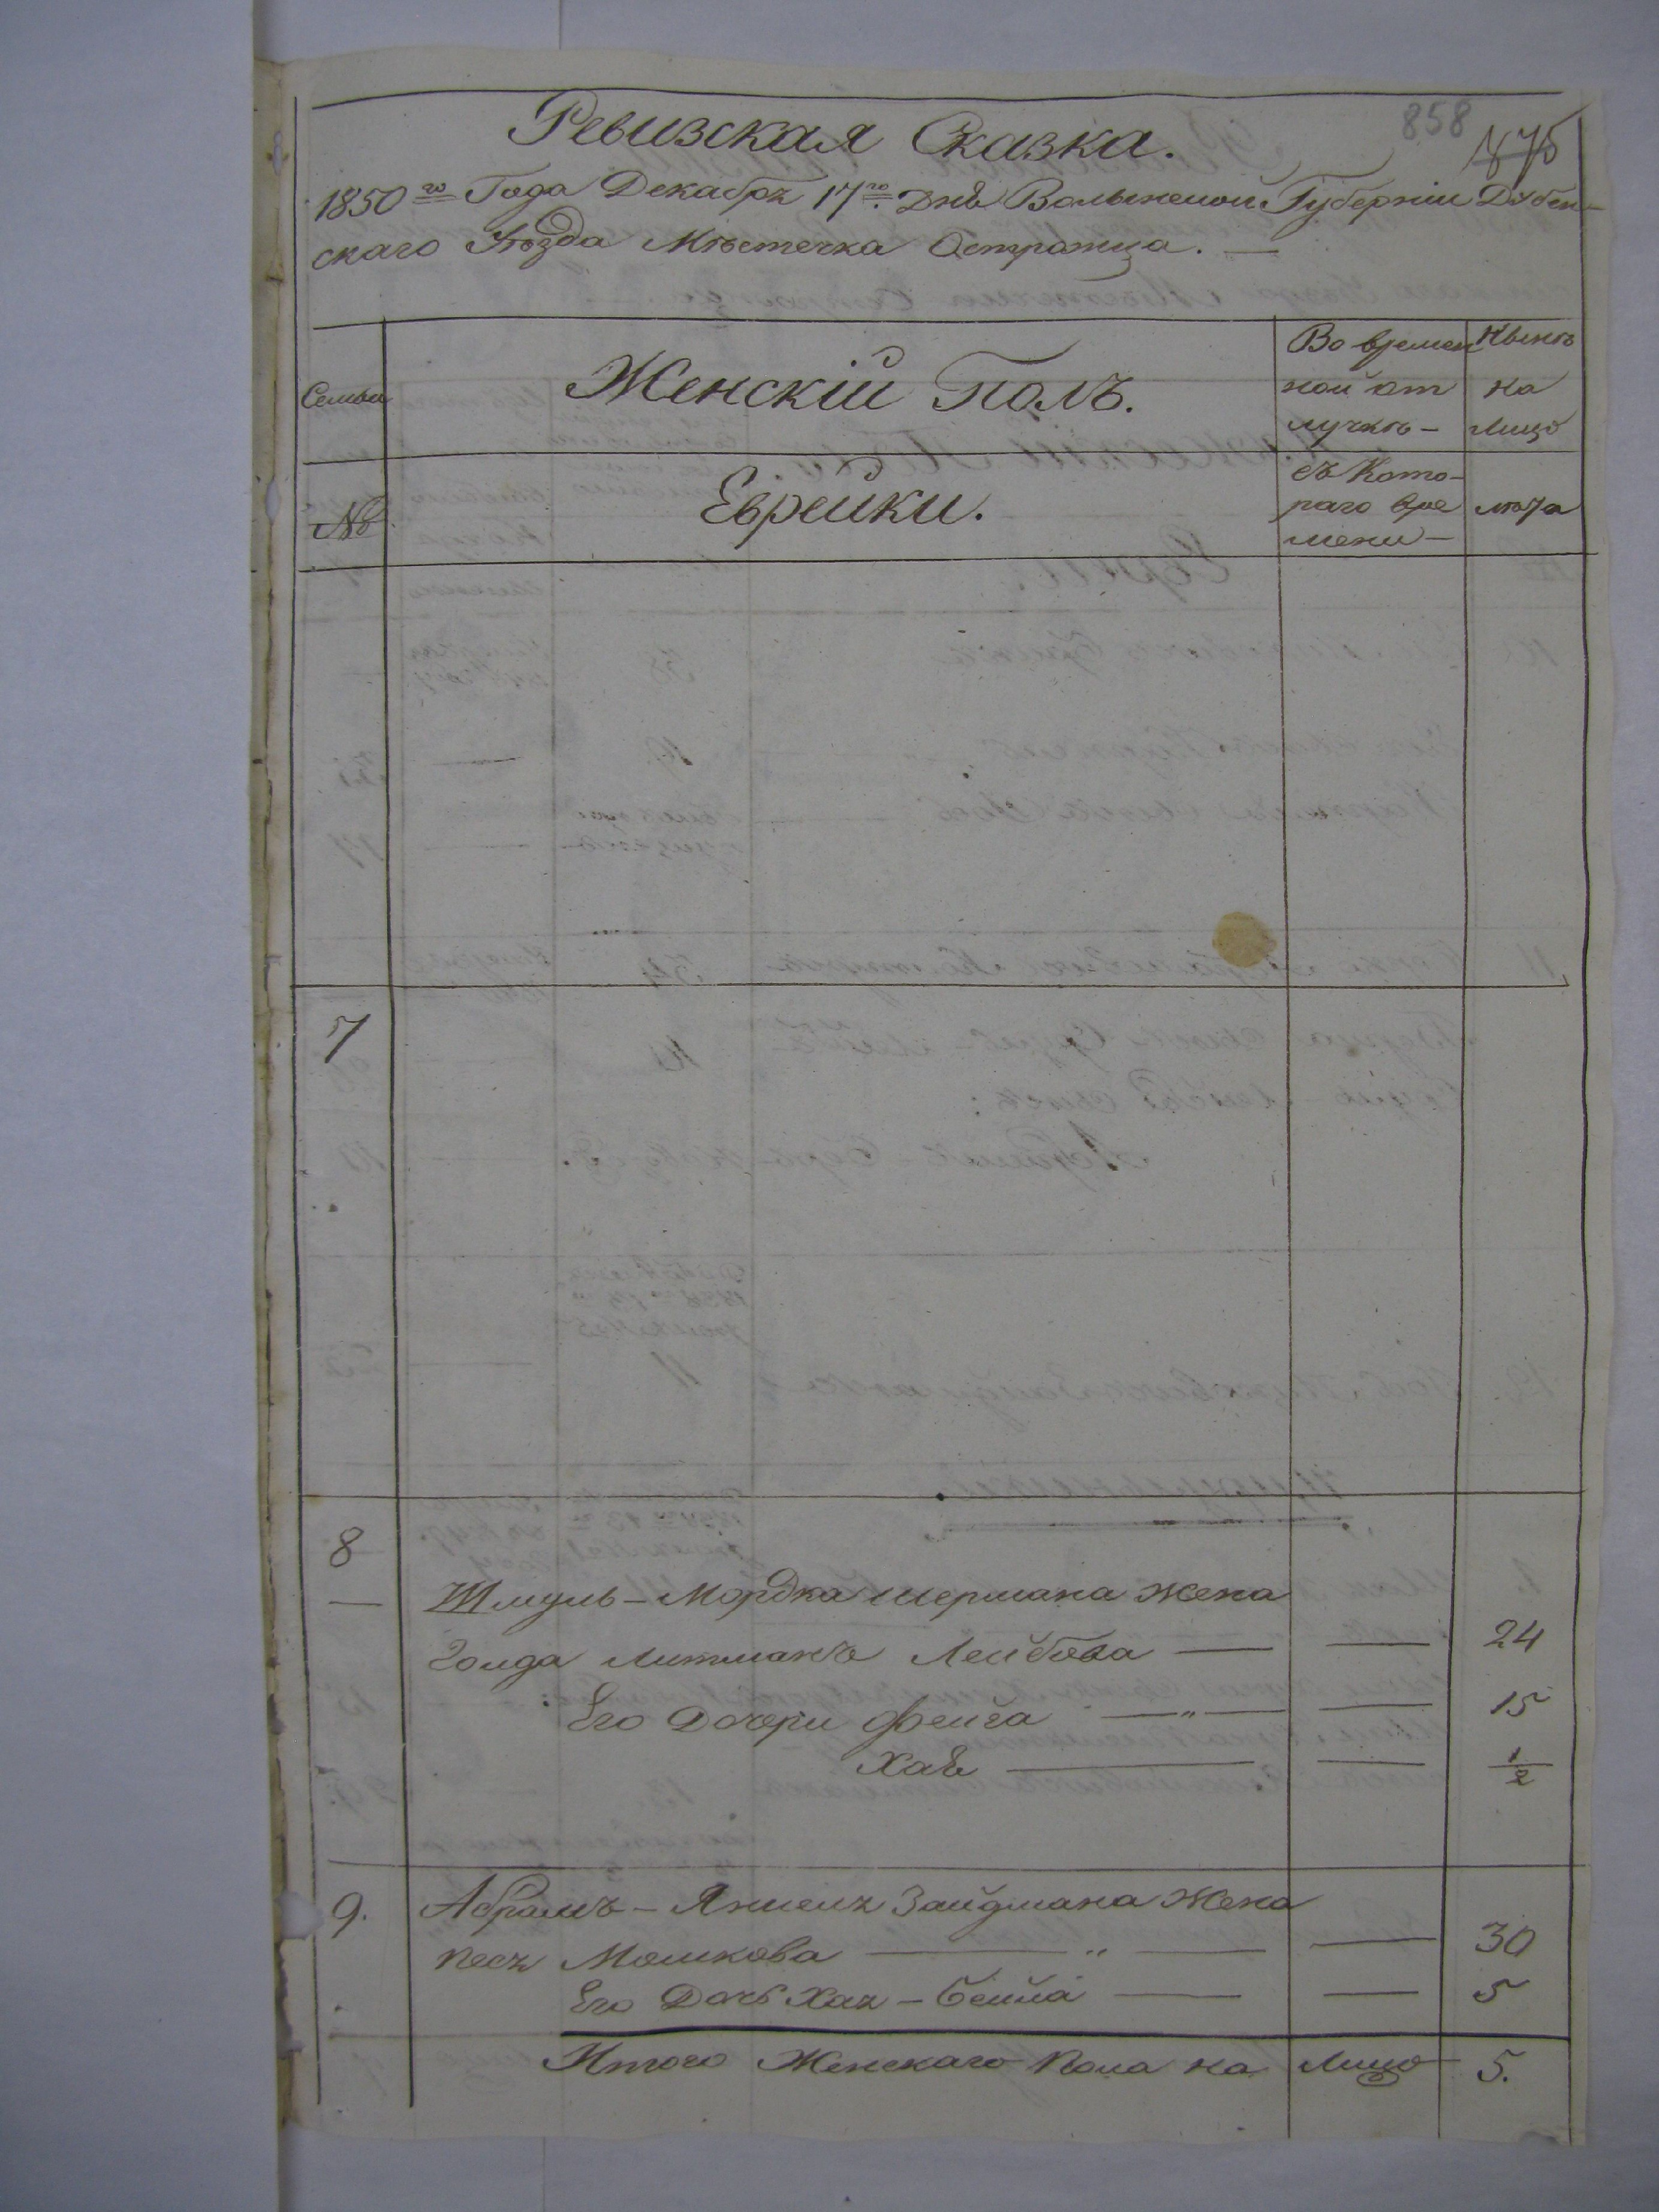 858
Ревизская Сказка.
1850го Года Декабря 17го Дня Волынской Губернии Дубен-
скаго Уѣзда Мѣстечка Остражца. —
Семьи
Женскій Полъ.
Во времен
ной от
лучкѣ –
Нынѣ
на
Лицо
№
Еврейки.
съ Кото-
раго вре
мени –
лѣта
7
8
Шмуль – Мордка Шермана Жена
Голда Литманъ Лейбова — — 24
Его Дочери Фейга —"— — 15
Хая — — 1/2
9. Абрамъ – Янкель Зайдмана Жена
Песя Мошкова — " — — 30
Его Дочь Хая – Бейла — — 5
Итого Женскаго Пола на Лицо 5.